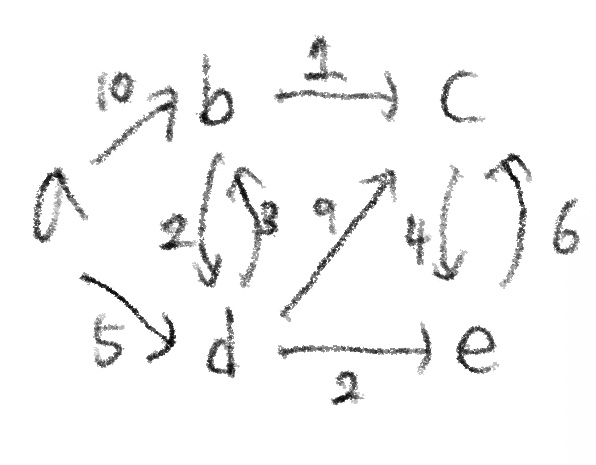 10 b 1 c
a 2 3 9 4 6
5 d 2 e